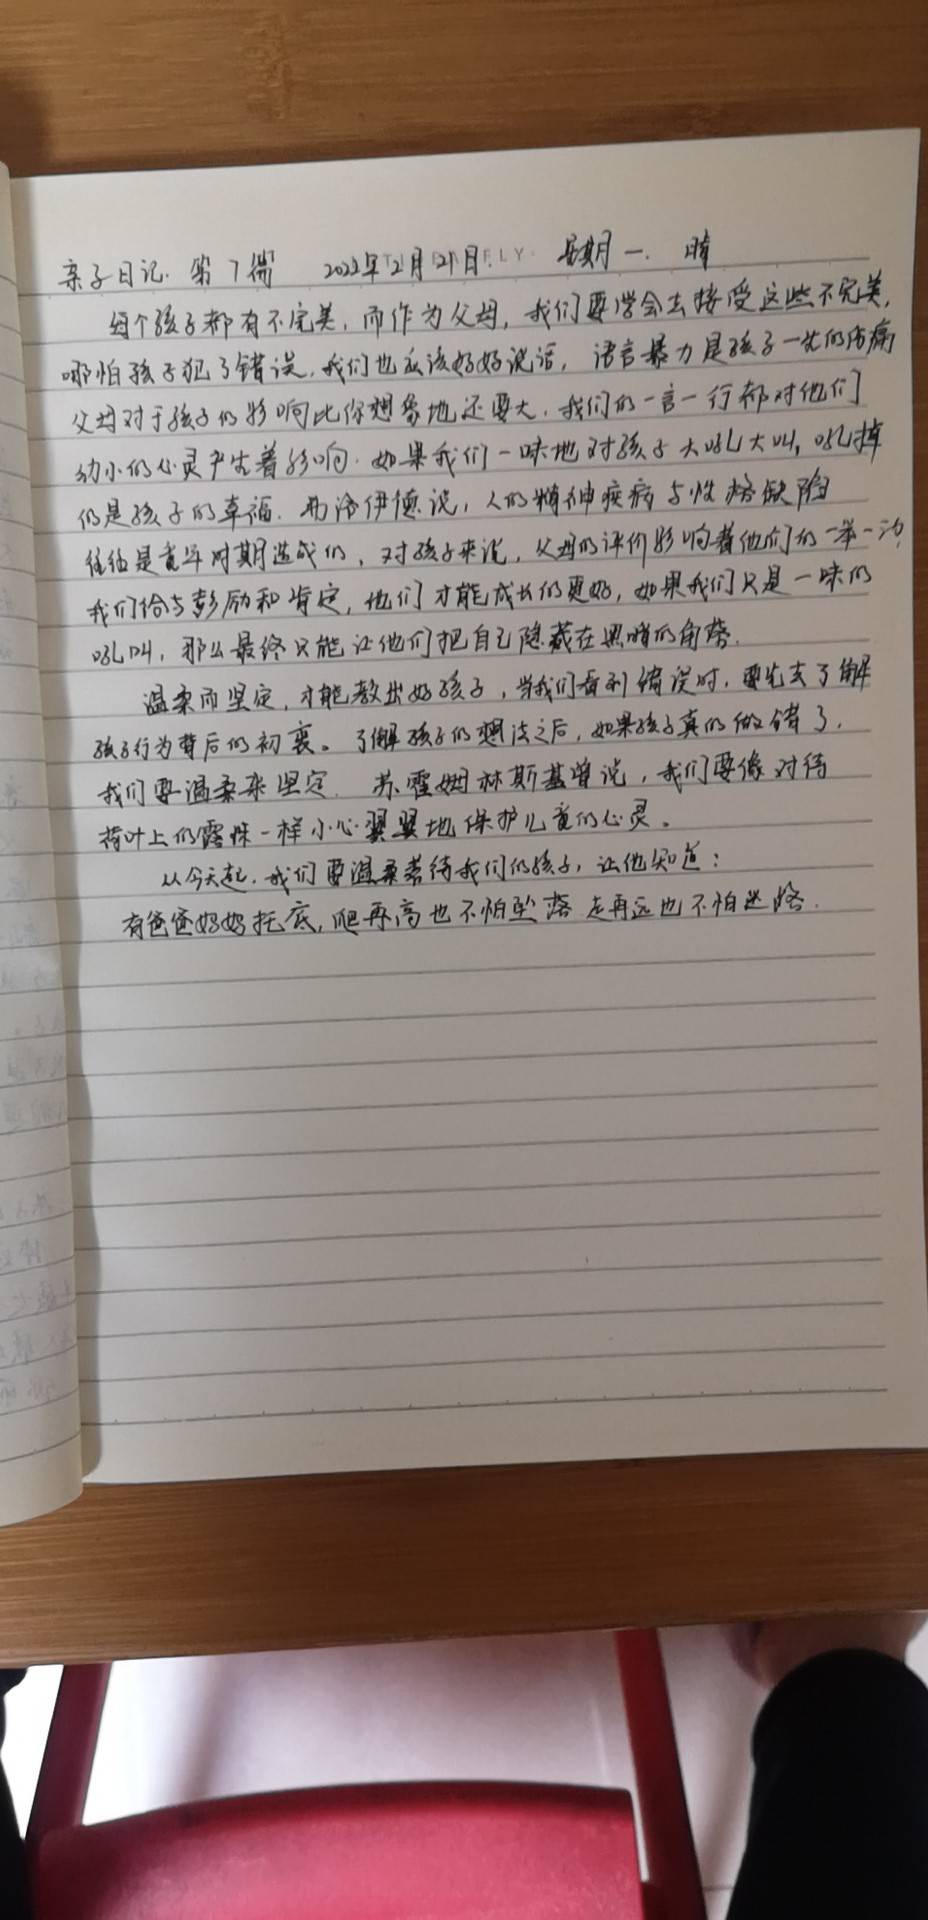 亲子日记 第7篇 2022年2月21日. 星期一. 晴
每个孩子都有不完美,而作为父母,我们要学会去接受这些不完美,
哪怕孩子犯了错误,我们也应该好好说话,语言暴力是孩子一生的伤痛
父母对于孩子的影响比你想象地还要大,我们的一言一行都对他们
幼小的心灵产生着影响.如果我们一味地对孩子大吼大叫,吼掉
的是孩子的幸福.弗洛伊德说,人的精神疾病与性格缺陷
往往是童年时期造成的,对孩子来说,父母的评价影响着他们的一举一动
我们给与鼓励和肯定,他们才能成长的更好,如果我们只是一味的
吼叫,那么最终只能让他们把自己隐藏在黑暗的角落.
温柔而坚定,才能教出好孩子,当我们看到错误时,要先去了解
孩子行为背后的初衷。了解孩子的想法之后,如果孩子真的做错了,
我们要温柔坚定.苏霍姆林斯基曾说,我们要像对待
荷叶上的露珠一样小心翼翼地保护儿童的心灵。
从今天起,我们要温柔善待我们的孩子,让他知道:
有爸爸妈妈托底,爬再高也不怕坠落 走再远也不怕迷路.